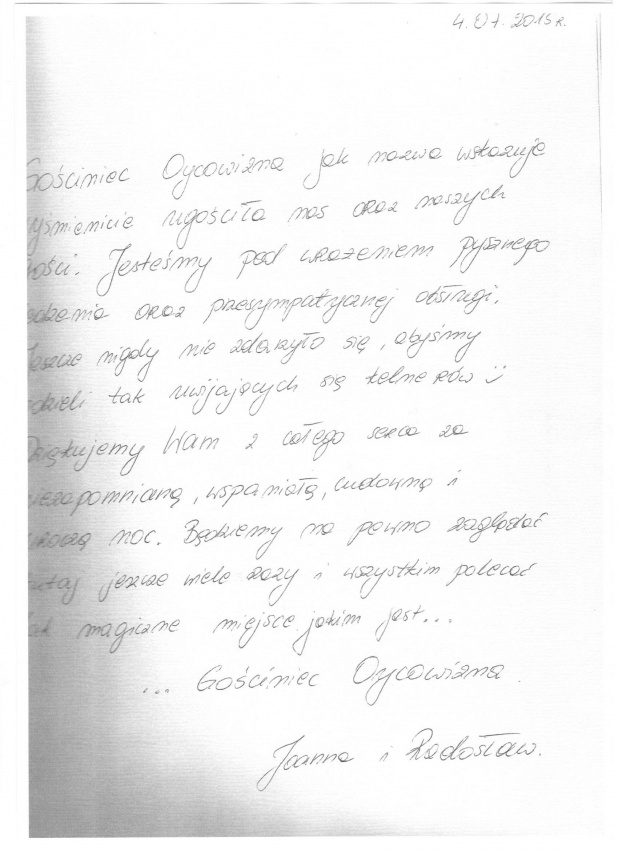 4.07.2015 r.
Gościniec Oycowizna jak nazwa wskazuje
yśmienicie ugościła nas oraz naszych
ości. Jesteśmy pod wrażeniem pysznego
edzenia oraz przesympatycznej obsługi.
eszcze nigdy nie zdarzyło się, abyśmy
dzieli tak uwijających się kelnerów
Dziękujemy Wam z całego serca za
niezapomnianą, wspaniałą, cudowną i
noc. Będziemy na pewno zaglądać
utaj jeszcze wiele razy i wszystkim polecać
tak magiczne miejsce jakim jest...
... Gościniec Oycowizna.
Joanna i Radosław.